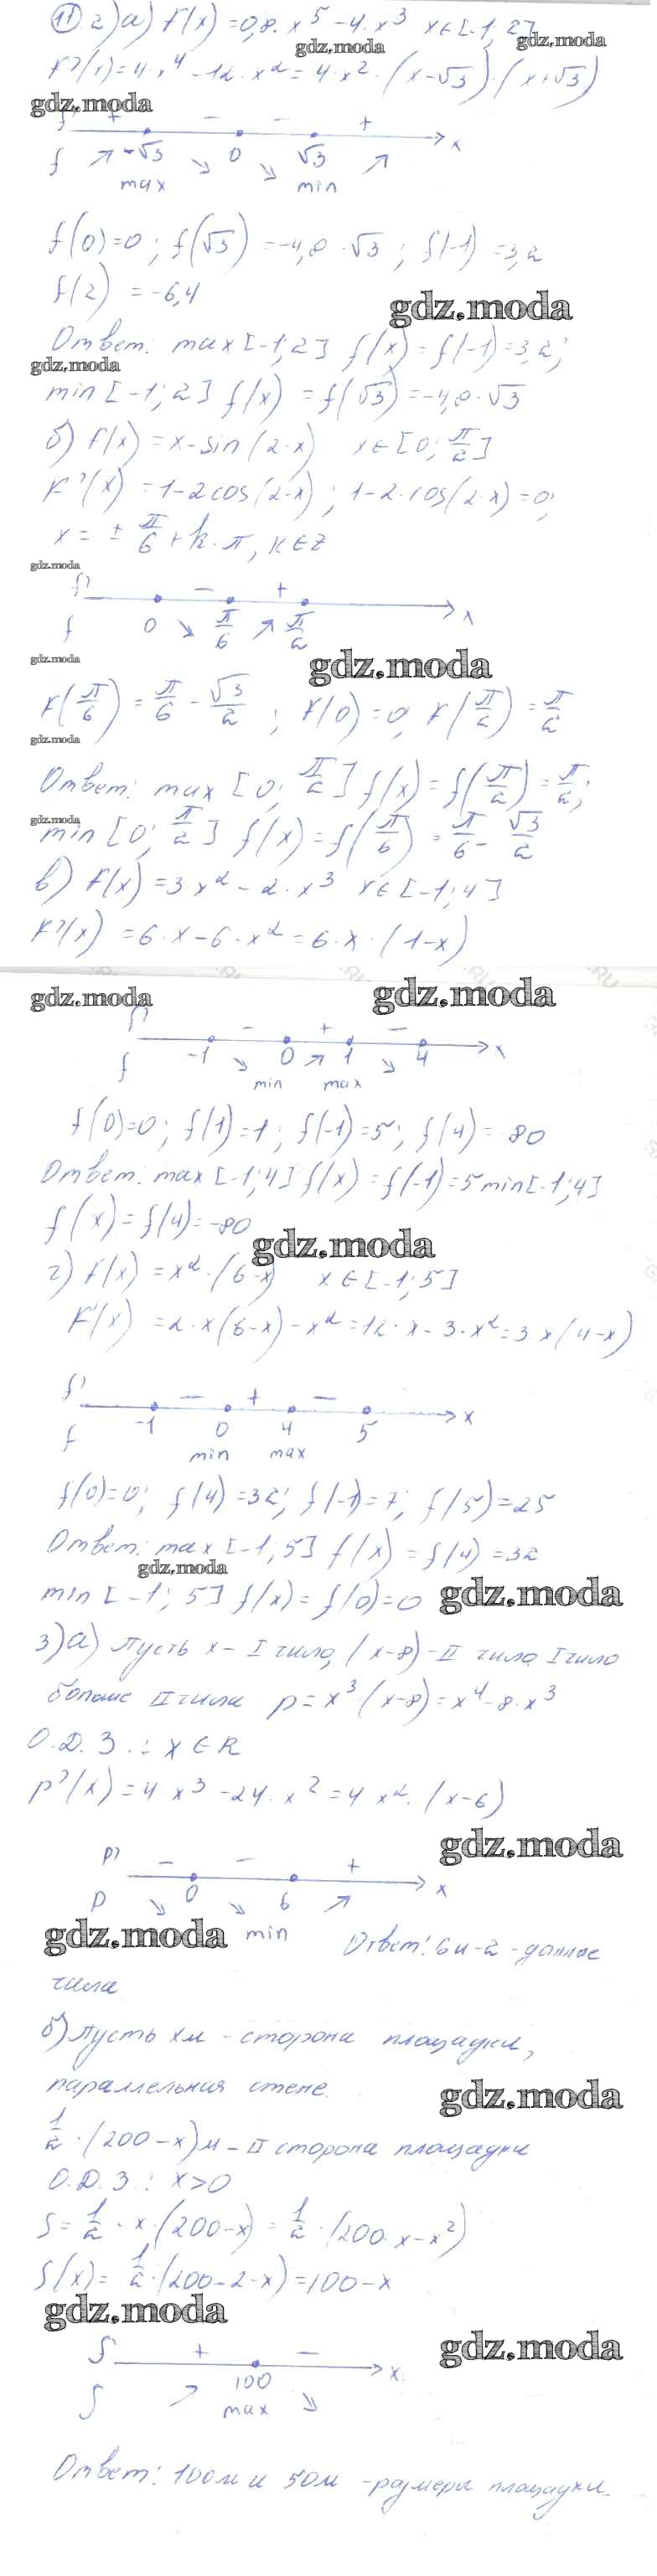 11 2) а) f(x) = 0,8 · x⁵ - 4 · x³ x∈[-1; 2]
gdz.moda gdz.moda
f'(x) = 4 · x⁴ - 12 · x² = 4 · x² · (x - √3) · (x + √3)
gdz.moda
f' + - - + x
f ↗ -√3 ↘ 0 ↘ √3 ↗
max min
f(0) = 0 ; f(√3) = -4,8 · √3 ; f(-1) = 3,2
f(2) = -6,4
gdz.moda
Ответ: max [-1; 2] f(x) = f(-1) = 3,2;
gdz.moda
min [-1; 2] f(x) = f(√3) = -4,8 · √3
б) f(x) = x - sin(2·x) x∈[0; π/2]
f'(x) = 1 - 2cos(2·x) ; 1 - 2·cos(2·x) = 0;
x = ± π/6 + k · π, k∈Z
gdz.moda
f' - + x
f 0 ↘ π/6 ↗ π/2
gdz.moda gdz.moda
f(π/6) = π/6 - √3/2 ; f(0) = 0, f(π/2) = π/2
gdz.moda
Ответ: max [0; π/2] f(x) = f(π/2) = π/2;
gdz.moda
min [0; π/2] f(x) = f(π/6) = π/6 - √3/2
в) f(x) = 3·x² - 2·x³ x∈[-1; 4]
f'(x) = 6·x - 6·x² = 6·x·(1-x)
gdz.moda gdz.moda
f' - + - x
f -1 ↘ 0 ↗ 1 ↘ 4
min max
f(0)=0; f(1)=1; f(-1)=5; f(4) = -80
Ответ: max [-1; 4] f(x) = f(-1) = 5 min[-1; 4]
f(x) = f(4) = -80
gdz.moda
г) f(x) = x²·(6-x) x∈[-1; 5]
f'(x) = 2·x(6-x) - x² = 12·x - 3·x² = 3x(4-x)
f' - + - x
f -1 0 4 5
min max
f(0)=0; f(4)=32; f(-1)=7; f(5)=25
Ответ: max [-1; 5] f(x) = f(4) = 32
gdz.moda
min [-1; 5] f(x) = f(0) = 0
gdz.moda
3) а) Пусть x - I число, (x-8) - II число I число
больше II числа p = x³·(x-8) = x⁴ - 8·x³
О.Д.З.: x∈R
p'(x) = 4x³ - 24·x² = 4x²·(x-6)
gdz.moda
p' - - + x
p ↘ 0 ↘ 6 ↗
gdz.moda min Ответ: 6 и -2 - данные
числа
б) Пусть xм - сторона площадки,
параллельная стене.
gdz.moda
1/2 · (200-x)м - II сторона площадки
О.Д.З.: x>0
S = 1/2 · x·(200-x) = 1/2 · (200·x - x²)
S'(x) = 1/2 · (200 - 2·x) = 100 - x
gdz.moda
gdz.moda
S' + - x
S ↗ 100 ↘
max
Ответ: 100м и 50м - размеры площадки.